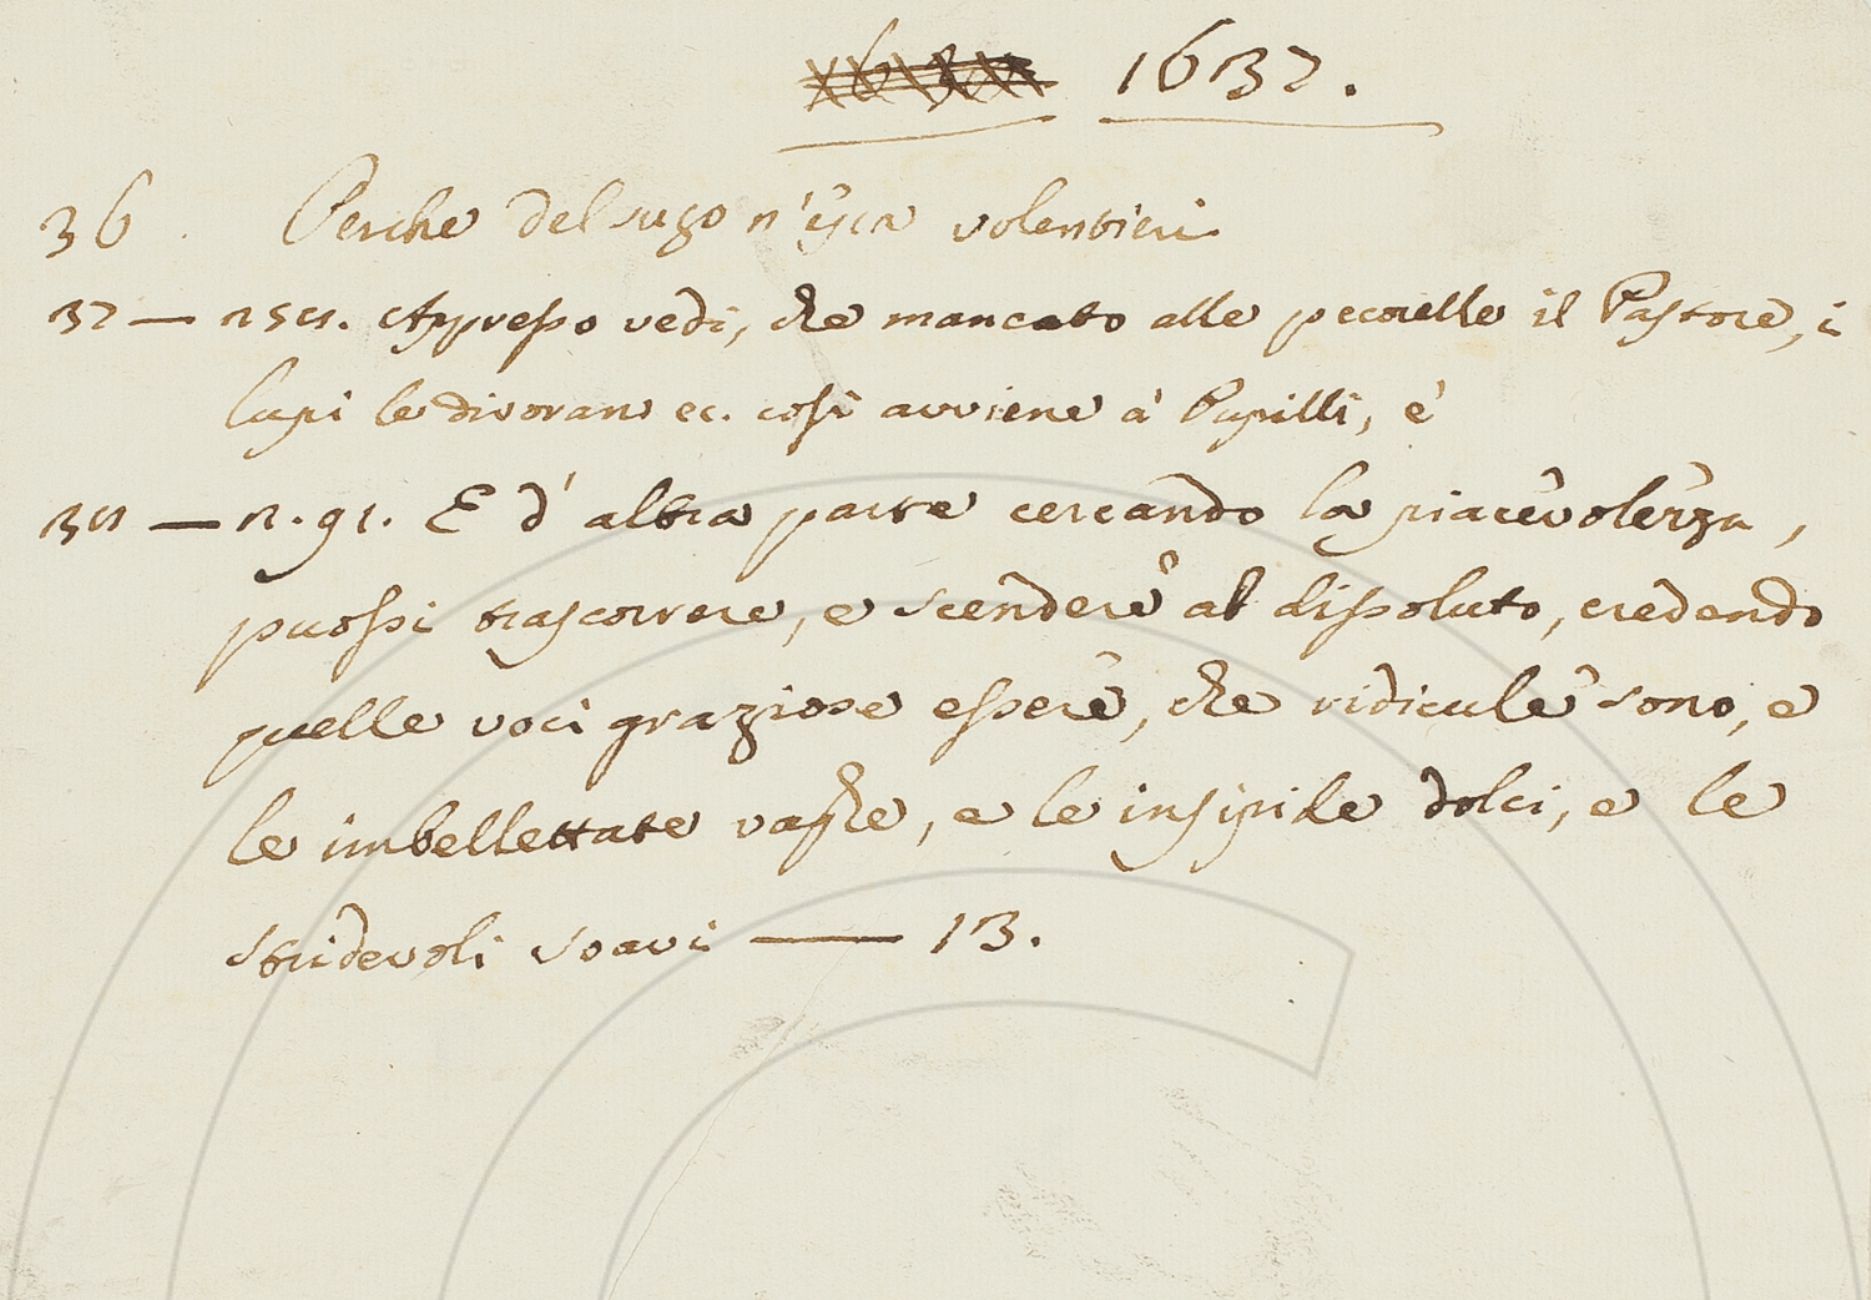 1637.
36. Perche del sugo n'esca volentieri
37 — Appresso vedi, che mancato alle pecorelle il Pastore, i
lupi le divorano ec. così avviene a' Pupilli, e'
38 — n. 91. E d' altra parte cercando la piacevolezza,
puossi trascorrere, e scendere al dissoluto, credendo
quelle voci graziose essere, che ridicule sono, e
le imbellettate vaghe, e le insipide dolci, e le
stridevoli soavi — 13.